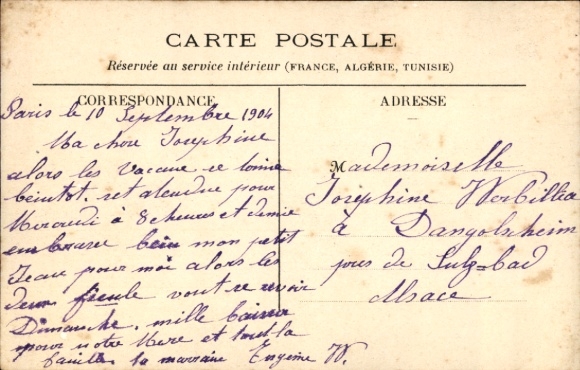 CARTE POSTALE
Réservée au service intérieur (FRANCE, ALGÉRIE, TUNISIE)
CORRESPONDANCE
Paris le 10 Septembre 1904
Ma chere Josephine
alors les vacance ce
bientot. pour
à 8 heures et demie
embrasse bien mon petit
pour moi alors les
deux vont ce revoir
Dimanche. mille baiser
pour notre Mere et tout la
famille. ta marraine Eugénie W.
ADRESSE
Mademoiselle
Joséphine
à Dangolsheim
pres de Sulz-bad
Alsace